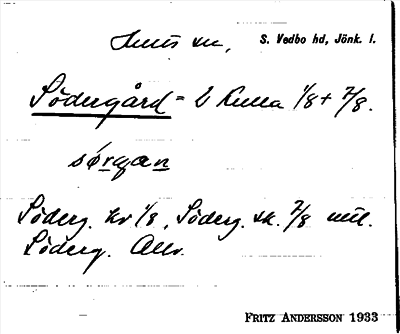 sn, S. Vedbo hd, Jönk. l.
Södergård = 2 Kulla 1/8 + 7/8.
sørgan
Söderg. kr 1/8, Söderg. sk. 7/8 mtl.
Söderg. Allm.
FRITZ ANDERSSON 1933